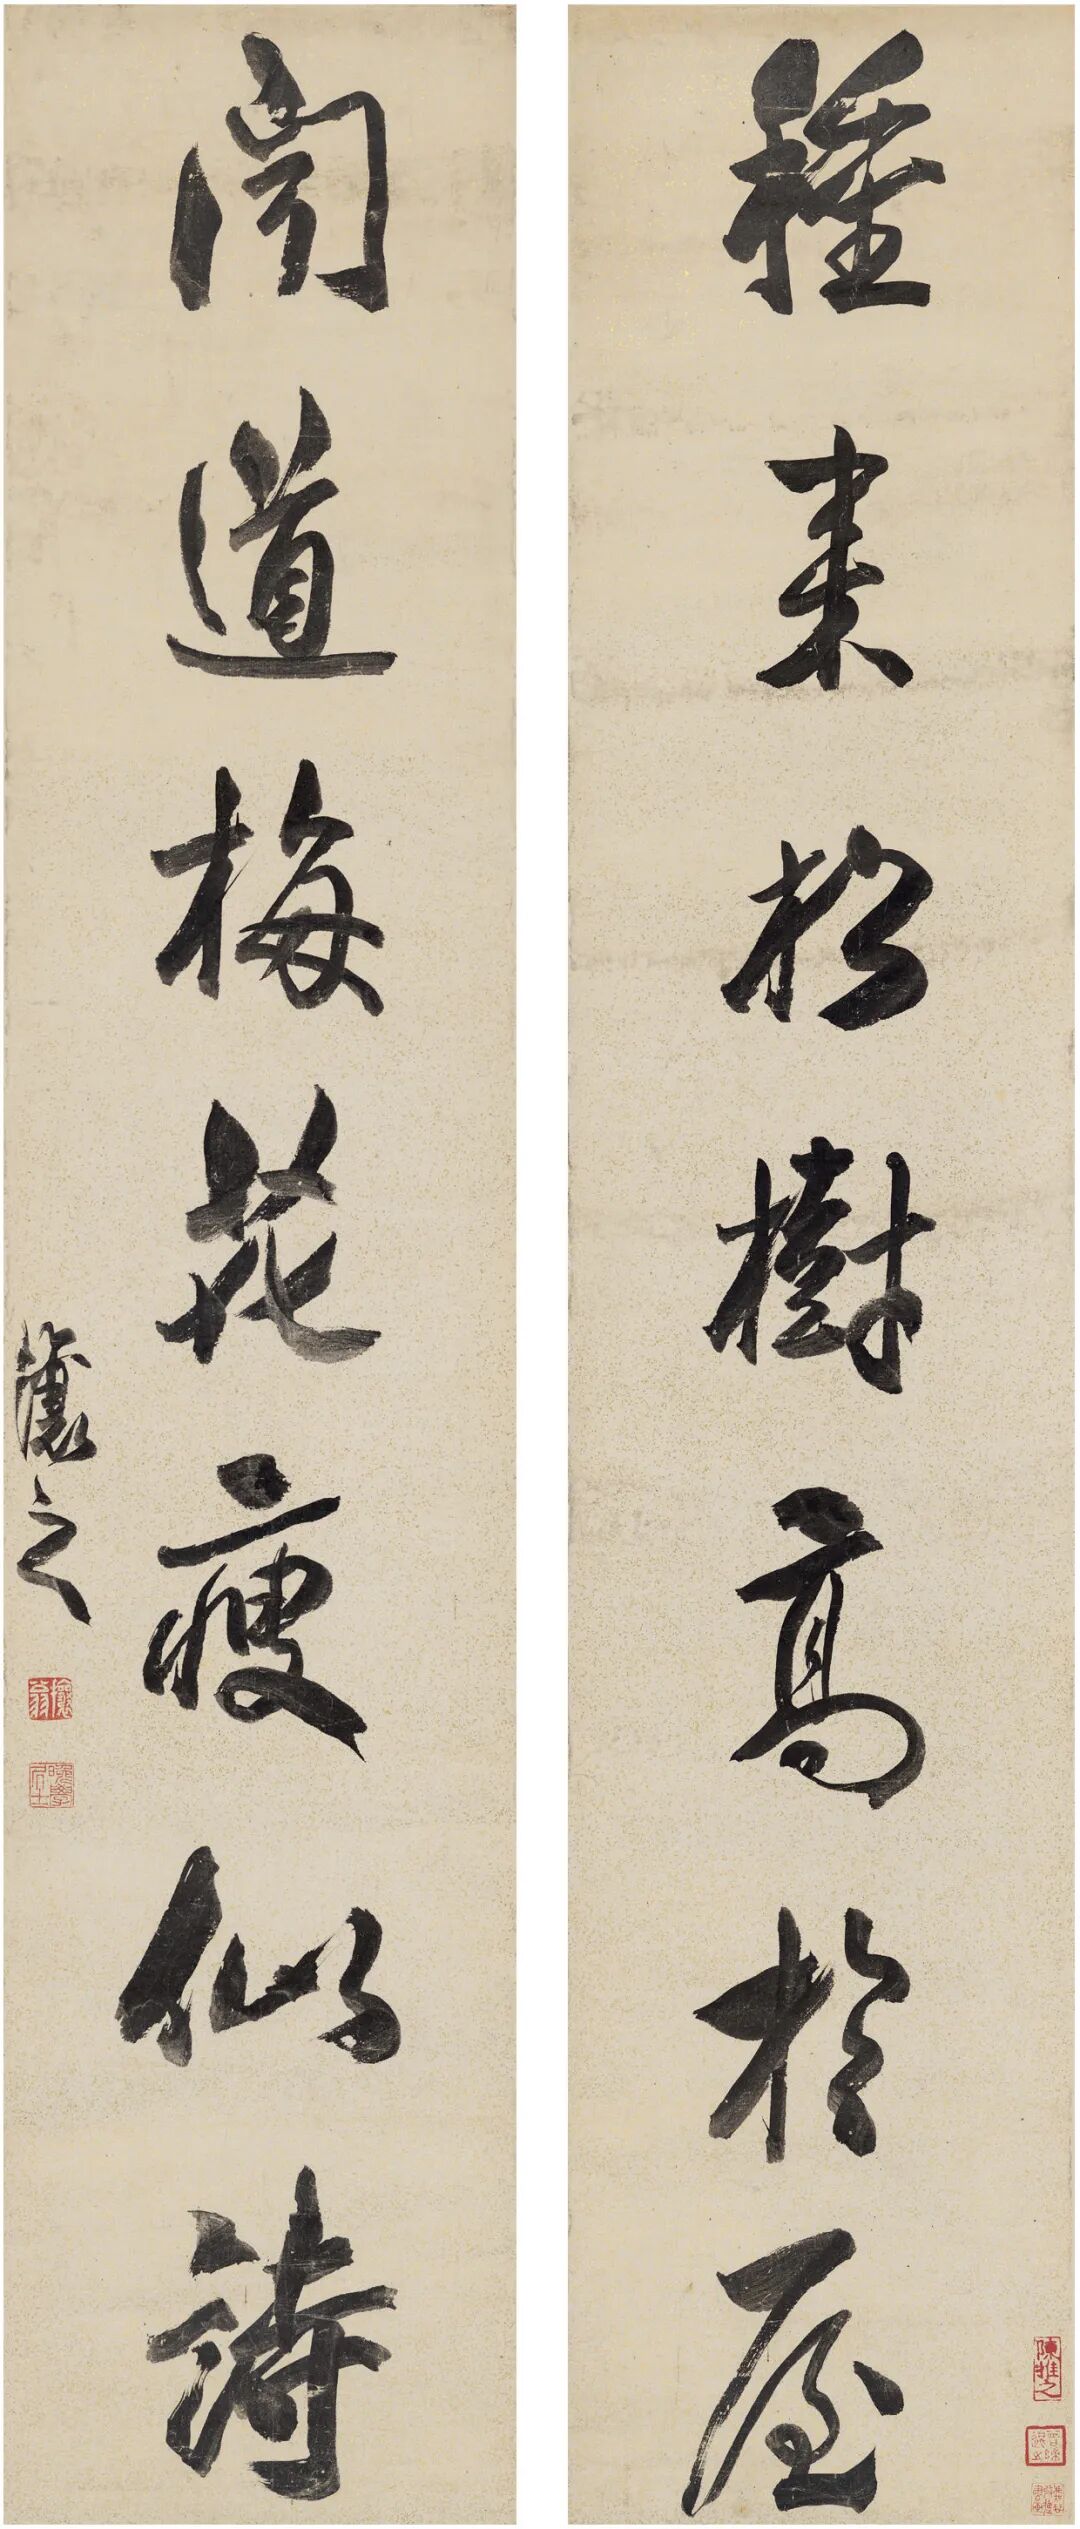 種来松樹高於屋
聞道梅花瘦似詩
讓之
陳雅之